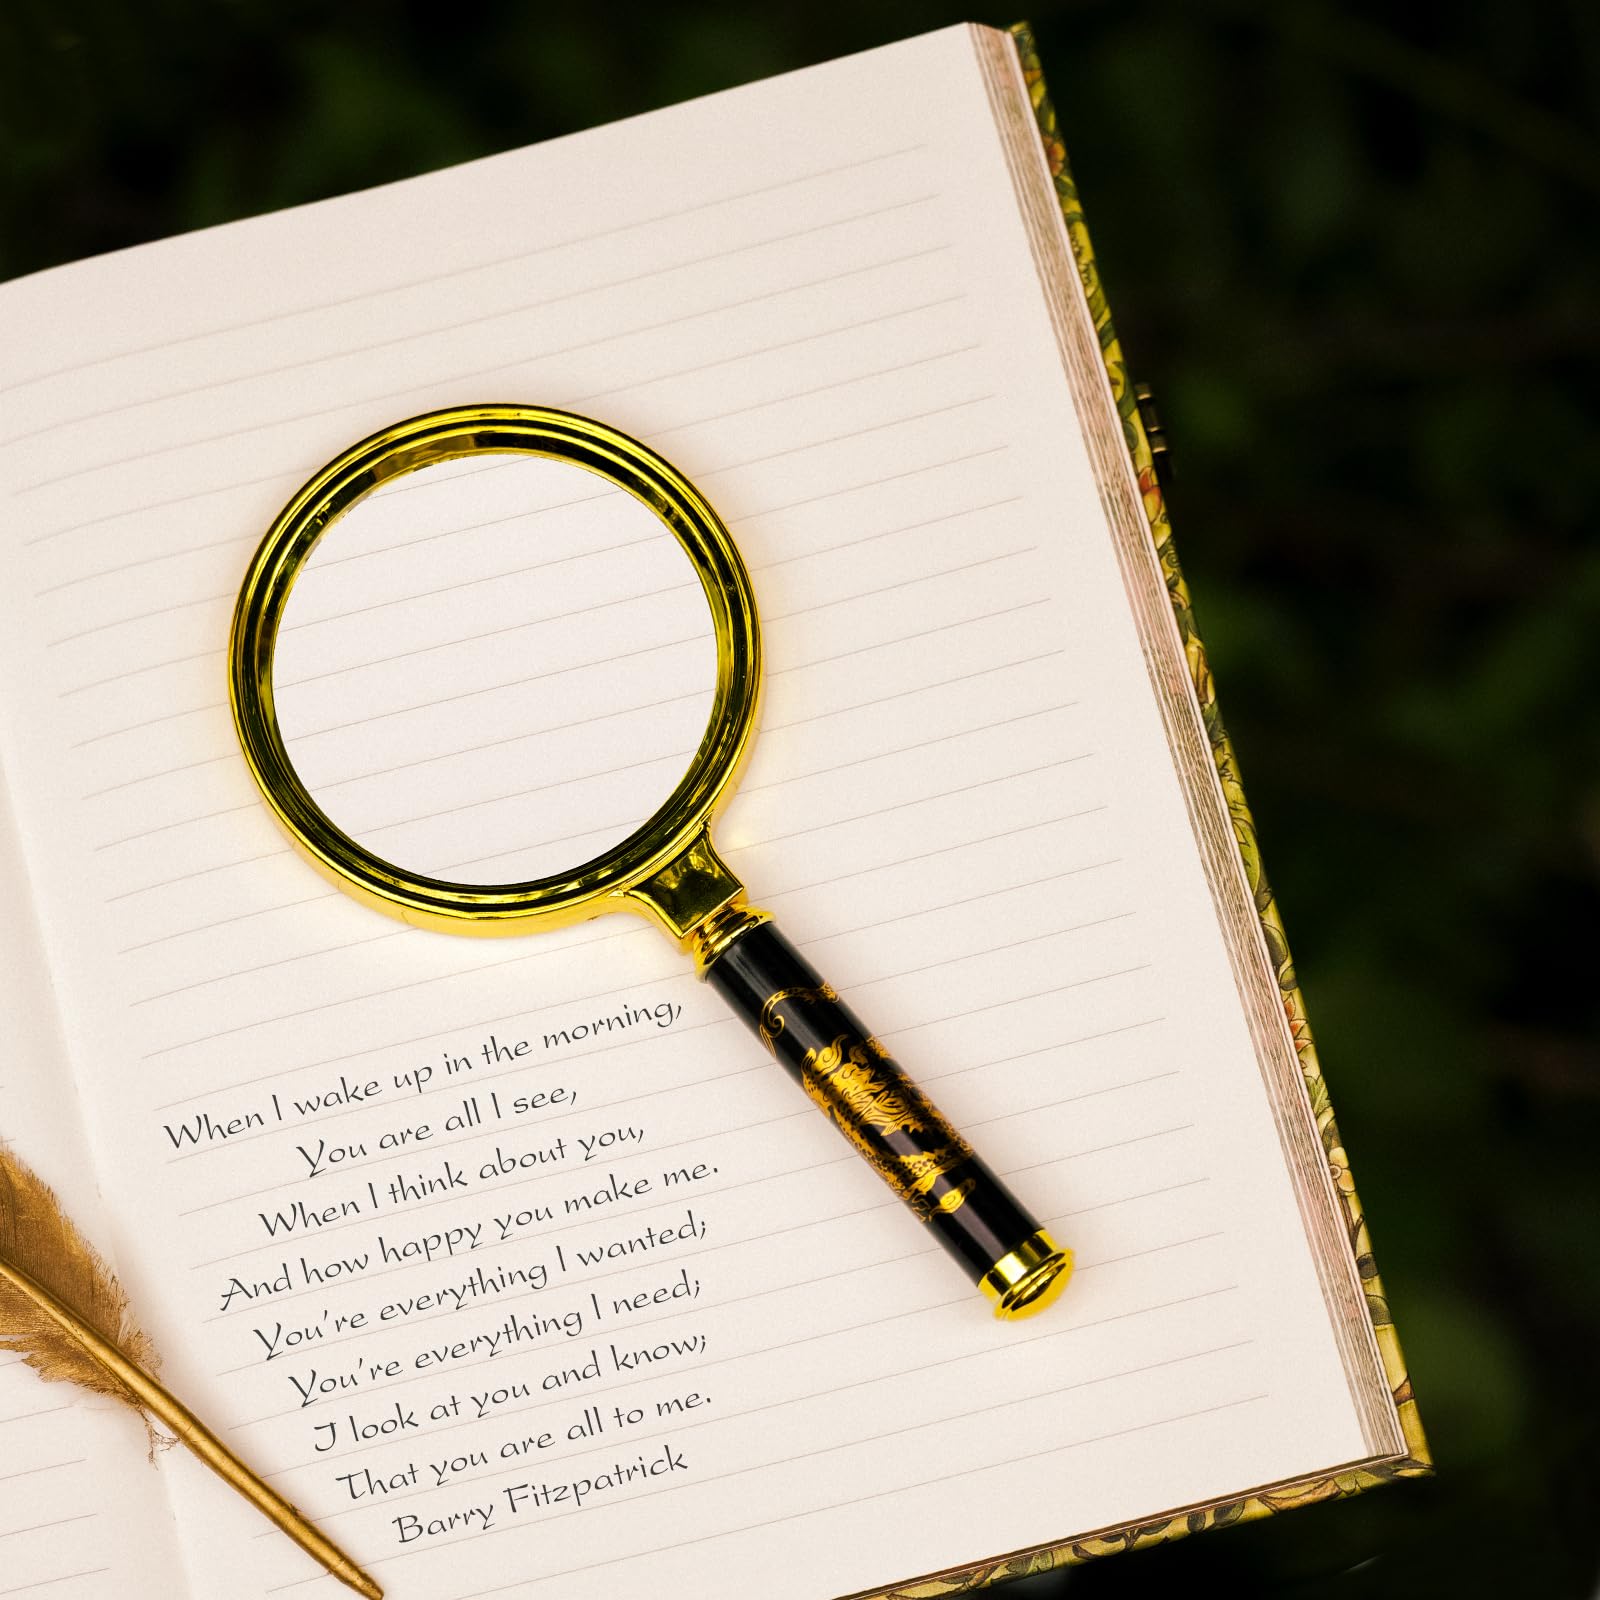 When I wake up in the morning,
You are all I see,
When I think about you,
And how happy you make me.
You're everything I wanted;
You're everything I need;
I look at you and know;
That you are all to me.
Barry Fitzpatrick